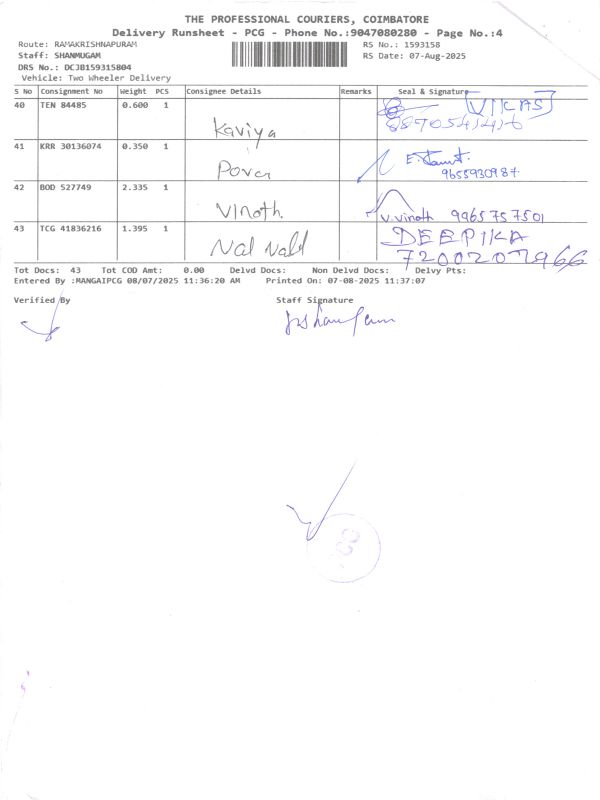 THE PROFESSIONAL COURIERS, COIMBATORE
Delivery Runsheet - PCG - Phone No.:9047080280 - Page No.:4
Route: RAMAKRISHNAPURAM RS No.: 1593158
Staff: SHANMUGAM RS Date: 07-Aug-2025
DRS No.: DCJB159315804
Vehicle: Two Wheeler Delivery
S No Consignment No Weight PCS Consignee Details Remarks Seal & Signature
40 TEN 84485 0.600 1 Kaviya VIKAS
41 KRR 30136074 0.350 1
9655930987
42 BOD 527749 2.335 1 Vinoth. V.Vinoth 9965757501
43 TCG 41836216 1.395 1 DEEPIKA
7200207966
Tot Docs: 43 Tot COD Amt: 0.00 Delvd Docs: Non Delvd Docs: Delvy Pts:
Entered By :MANGAIPCG 08/07/2025 11:36:20 AM Printed On: 07-08-2025 11:37:07
Verified By Staff Signature